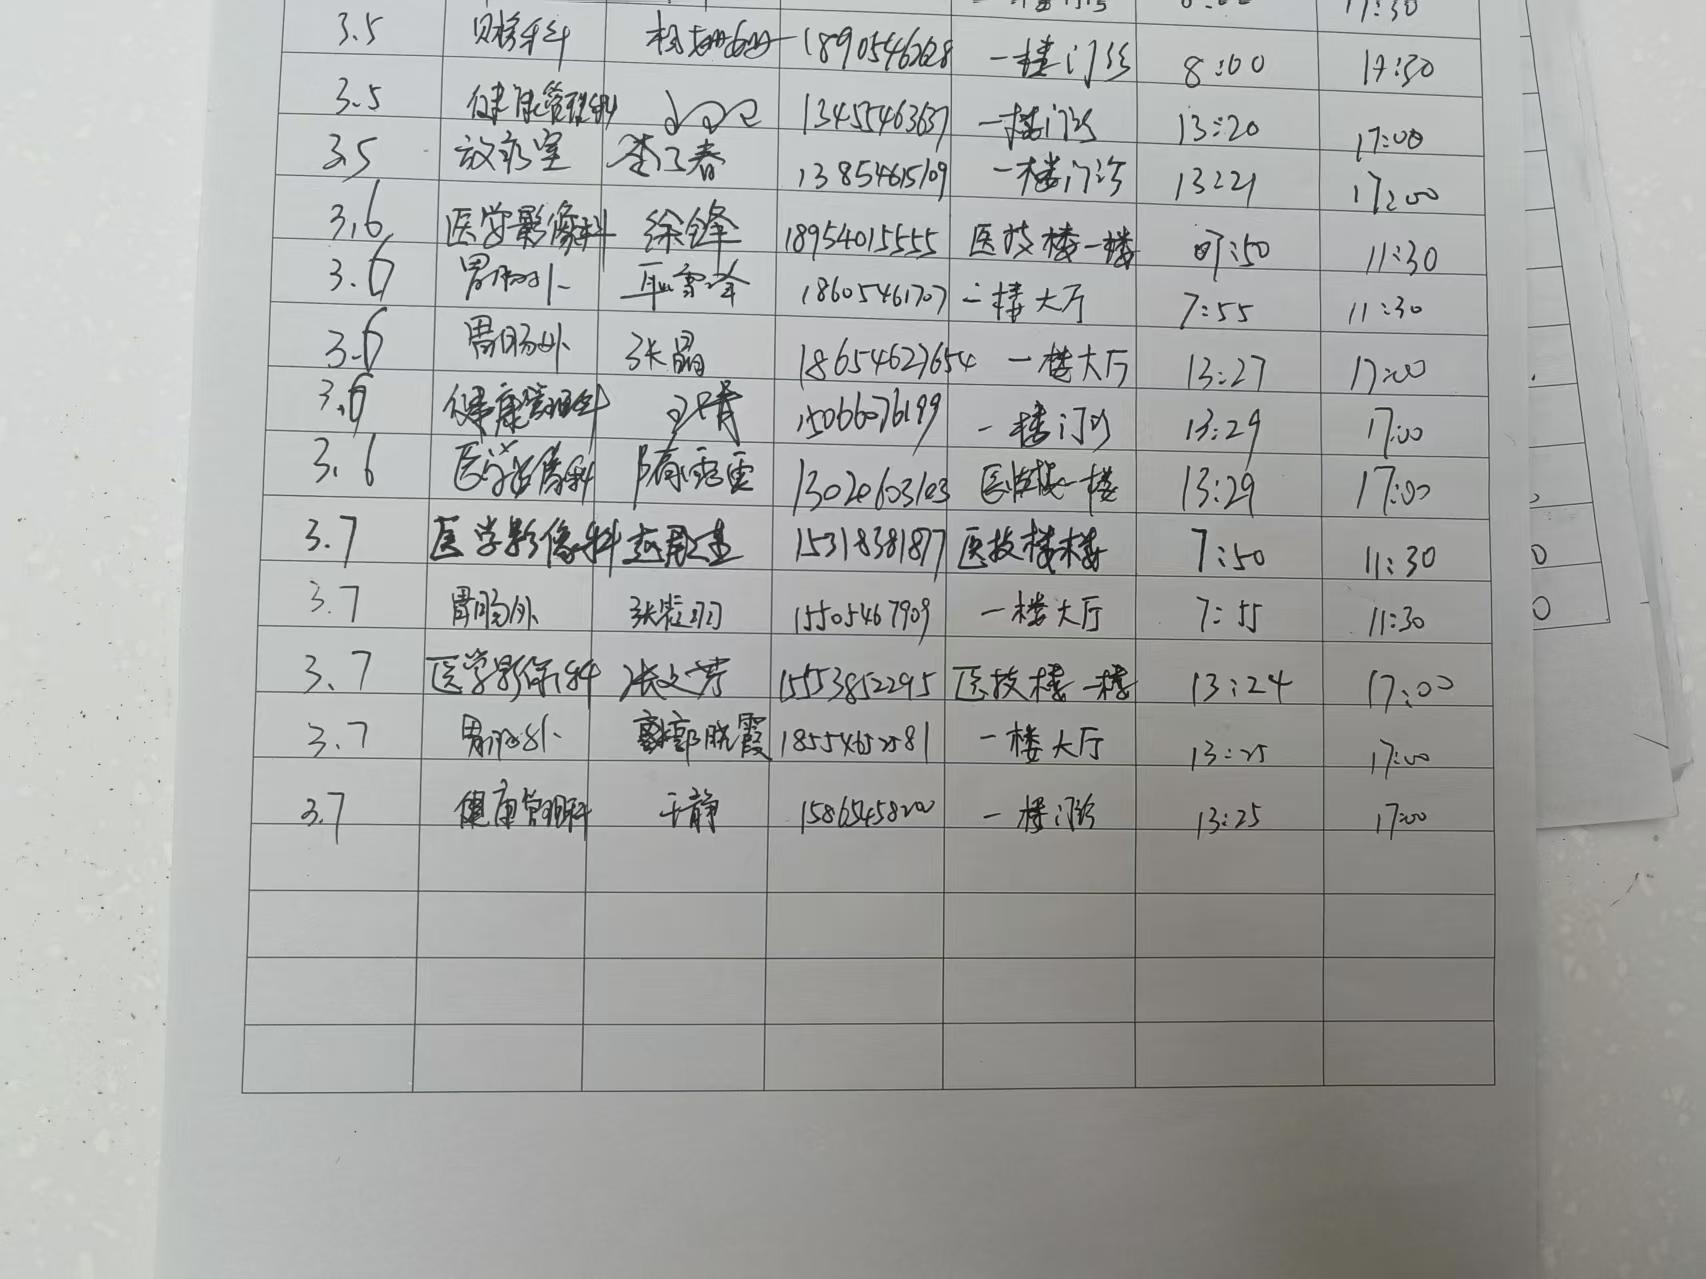 17:30
3.5 财务科 18905462628 一楼门诊 8:00 17:30
3.5 健康管理科 13455463637 一楼门诊 13:20 17:00
3.5 放疗室 李江春 13854615109 一楼门诊 13:21 17:00
3.6 医学影像科 徐锋 18954015555 医技楼一楼 07:50 11:30
3.6 胃肠外 耿雪峰 18605461707 一楼大厅 7:55 11:30
3.6 胃肠外 张晶 18654627654 一楼大厅 13:27 17:00
3.6 健康管理科 15066076199 一楼门诊 13:29 17:00
3.6 医学影像科 13:29 17:00
3.7 医学影像科 15318381877 医技楼楼 7:50 11:30
3.7 胃肠外 15505467909 一楼大厅 7:55 11:30
3.7 医学影像科 张文芳 15553852295 医技楼一楼 13:24 17:00
3.7 胃肠外 郭晓霞 18554652581 一楼大厅 13:25 17:00
3.7 健康管理科 于静 15865458200 一楼门诊 13:25 17:00